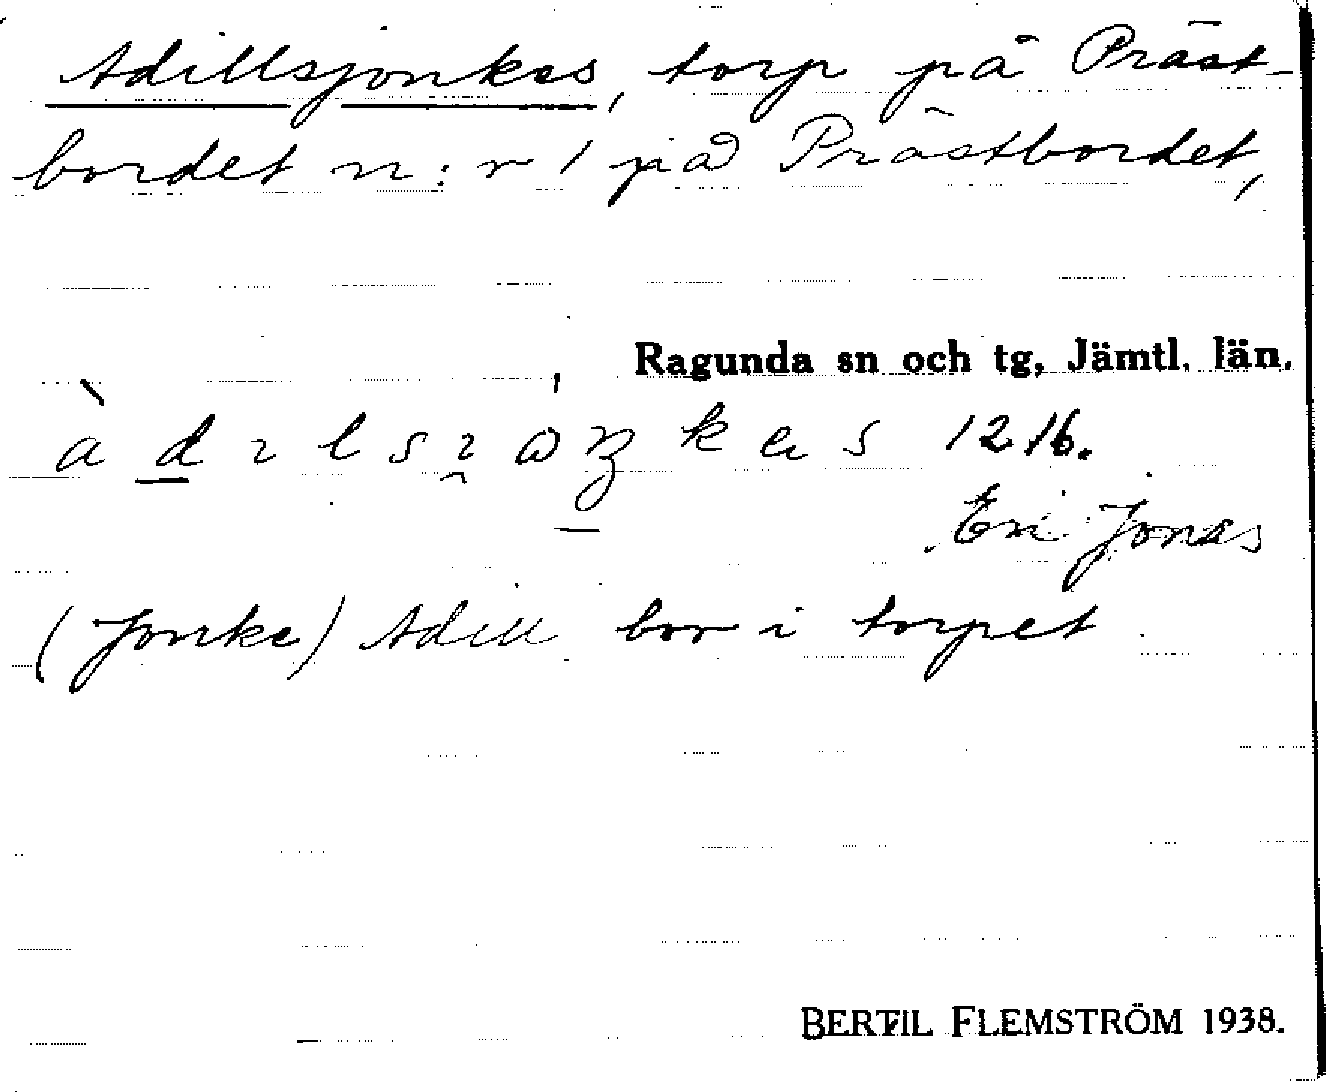 Adillsjonkes, torp på Präst-
bordet n:r 1 på Prästbordet,
Ragunda sn och tg, Jämtl. län.
1216.
Jonas
(Jonke) Adill bor i torpet
BERTIL FLEMSTRÖM 1938.